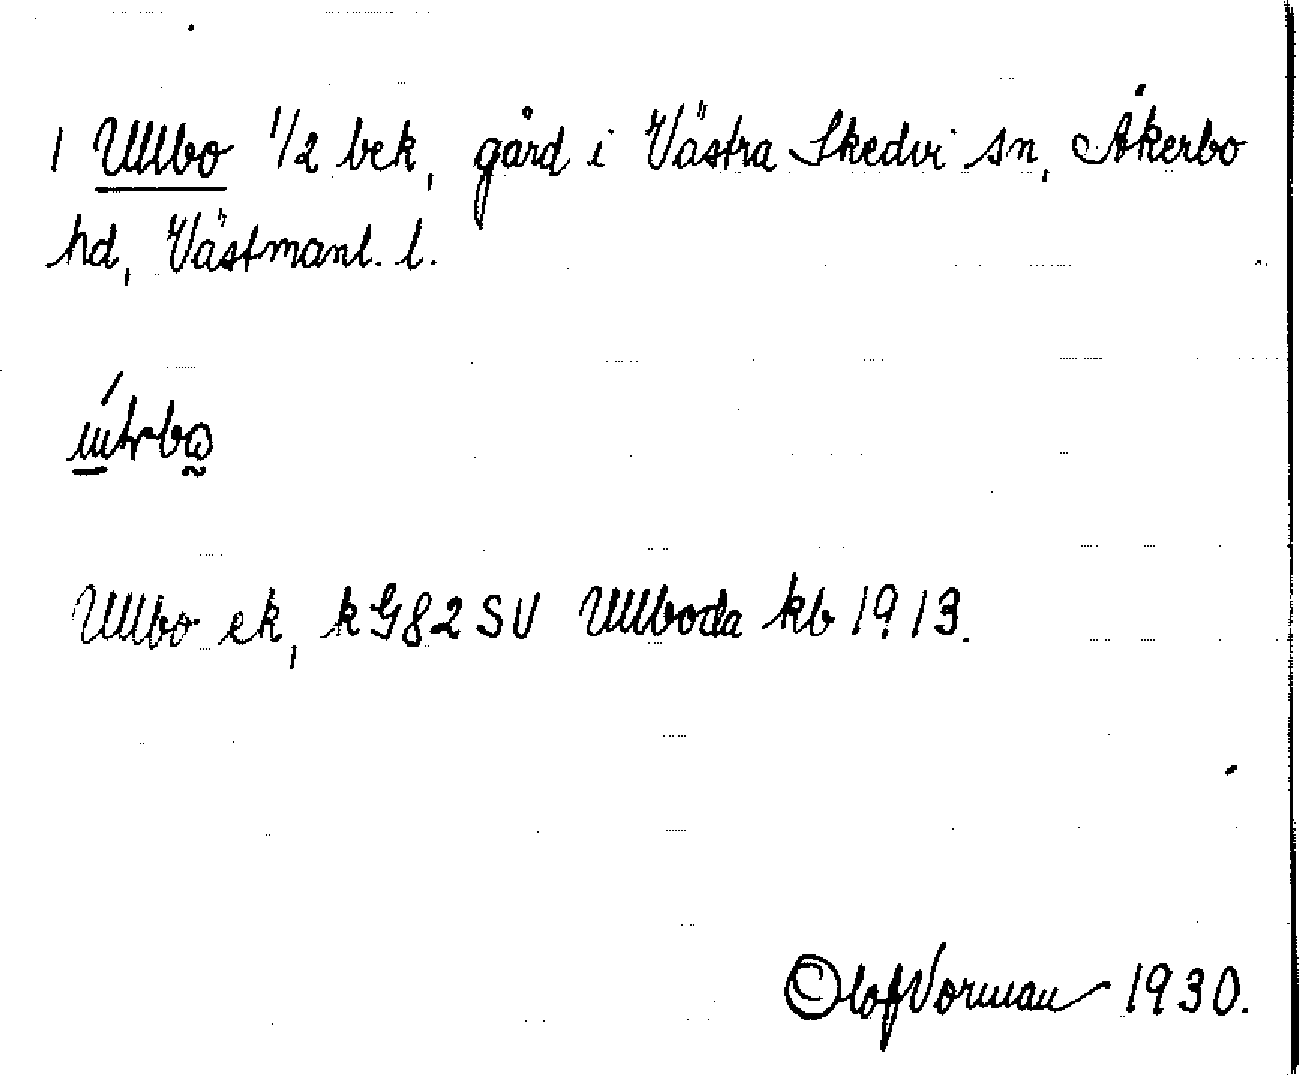 1 Ullbo 1/2 bek, gård i Västra Skedvi sn, Åkerbo
hd, Västmanl. l.
Ullbo ek, k G82 SV Ullboda kb 1913.
Olof Vorman 1930.